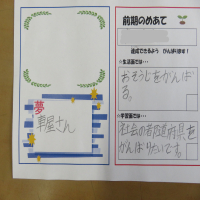 夢
車屋さん
前期のめあて
達成できるよう がんばります!
☆生活面では…
おそうじをがんば
る。
☆学習面では…
社会の都道府県を
がんばりたいです。